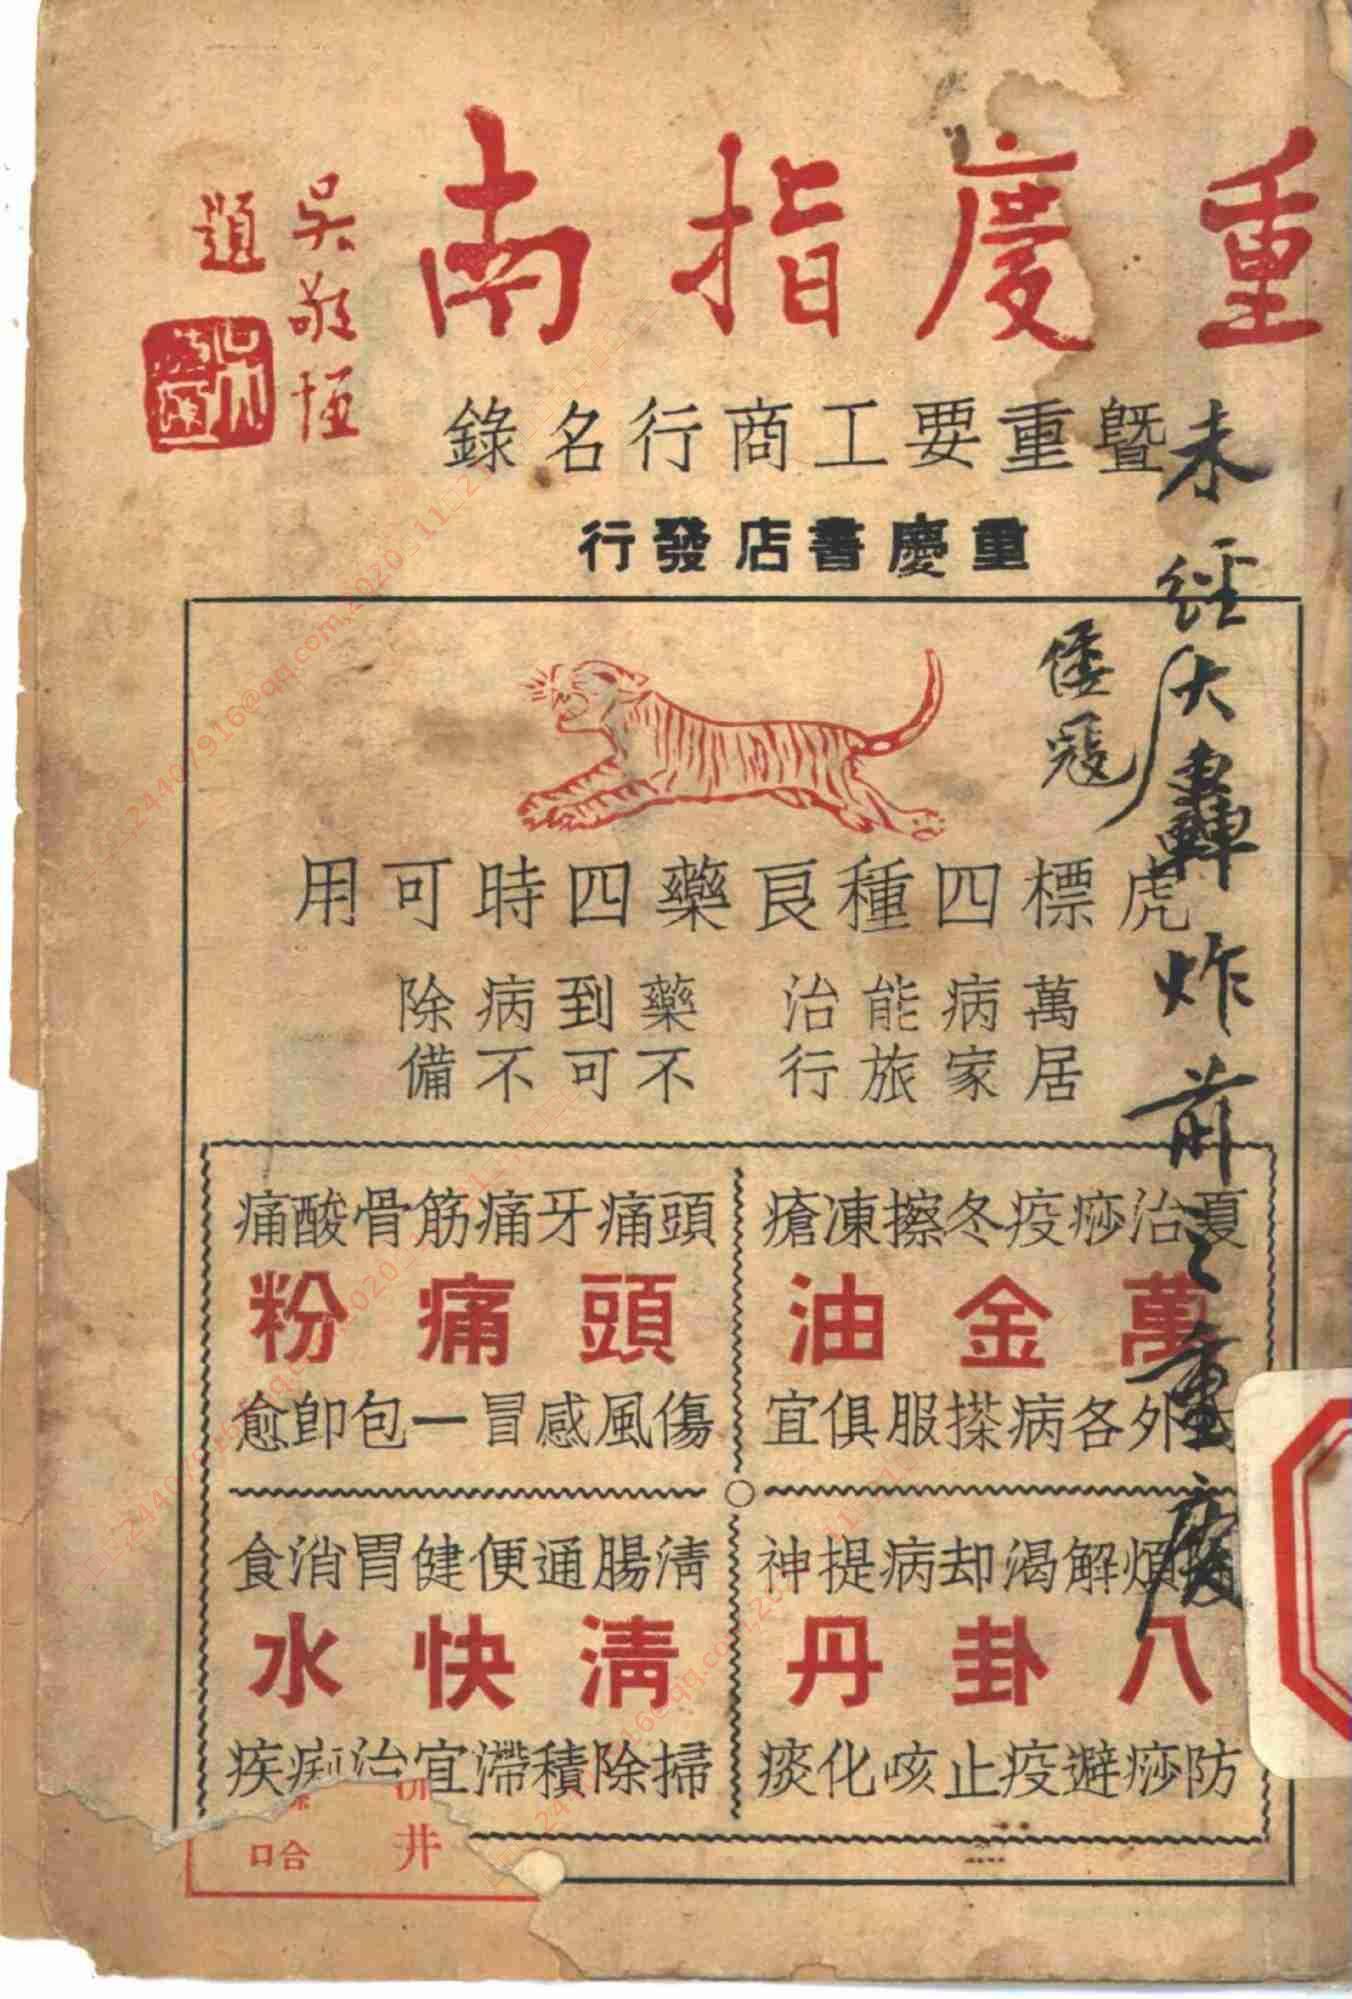 重慶指南
吳敬恆
題
暨重要工商行名錄
重慶書店發行
未經倭寇大轟炸前之重慶
虎標四種良藥四時可用
萬病能治 藥到病除
居家旅行 不可不備
夏治痧疫冬擦凍瘡
萬金油
外各病搽服俱宜
頭痛牙痛筋骨酸痛
頭痛粉
傷風感冒一包卽愈
煩解渴却病提神
八卦丹
防痧避疫止咳化痰
淸腸通便健胃消食
淸快水
掃除積滯宜治痢疾
井
合口